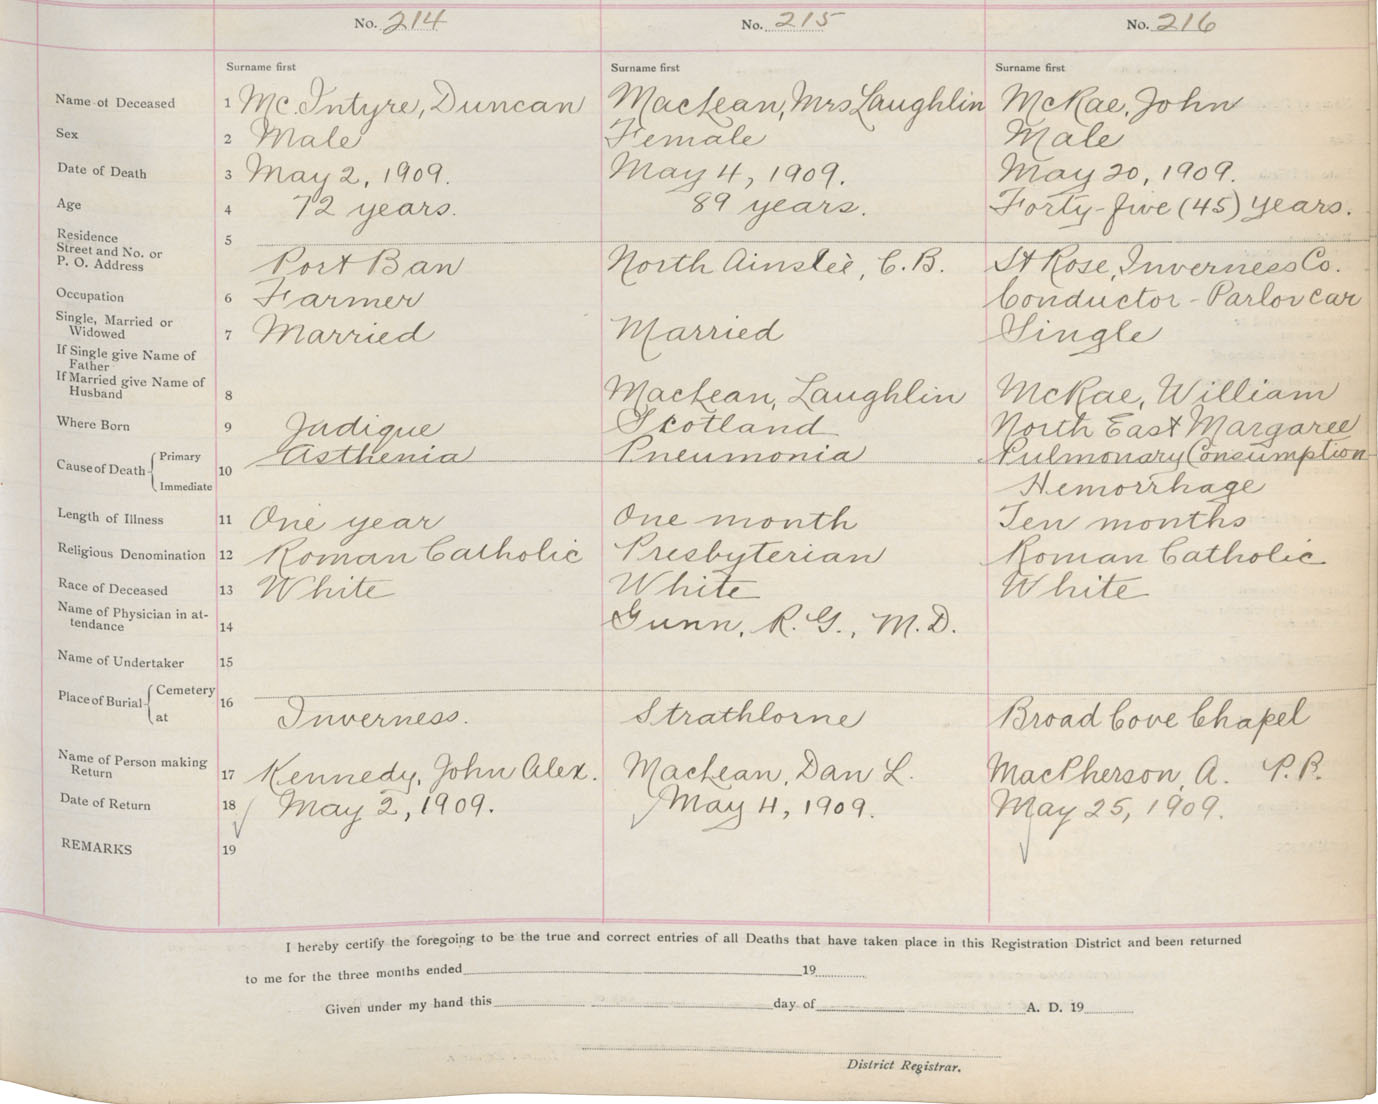 No. 214 No. 215 No. 216
Surname first Surname first Surname first
Name of Deceased 1 Mc.Intyre, Duncan MacLean, Mrs Laughlin McRae, John
Sex 2 Male Female Male
Date of Death 3 May 2, 1909. May 4, 1909. May 20, 1909.
Age 4 72 years. 89 years. Forty-five (45) years.
Residence 5
Street and No. or
P. O. Address Port Ban North Ainslie, C.B. St Rose, Inverness Co.
Occupation 6 Farmer Conductor - Parlor car
Single, Married or
Widowed 7 Married Married Single
If Single give Name of
Father
If Married give Name of
Husband 8 MacLean, Laughlin McRae, William
Where Born 9 Judique Scotland North East Margaree
Cause of Death Primary 10 Asthenia Pneumonia Pulmonary Consumption
Immediate Hemorrhage
Length of Illness 11 One year One month Ten months
Religious Denomination 12 Roman Catholic Presbyterian Roman Catholic
Race of Deceased 13 White White White
Name of Physician in at-
tendance 14 Gunn, R. G., M.D.
Name of Undertaker 15
Place of Burial Cemetery 16
at Inverness. Strathlorne Broad Cove Chapel
Name of Person making
Return 17 Kennedy, John Alex. MacLean, Dan L. MacPherson, A. P.P.
Date of Return 18 May 2, 1909. May 4, 1909. May 25, 1909.
REMARKS 19
I hereby certify the foregoing to be the true and correct entries of all Deaths that have taken place in this Registration District and been returned
to me for the three months ended 19
Given under my hand this day of A. D. 19
District Registrar.